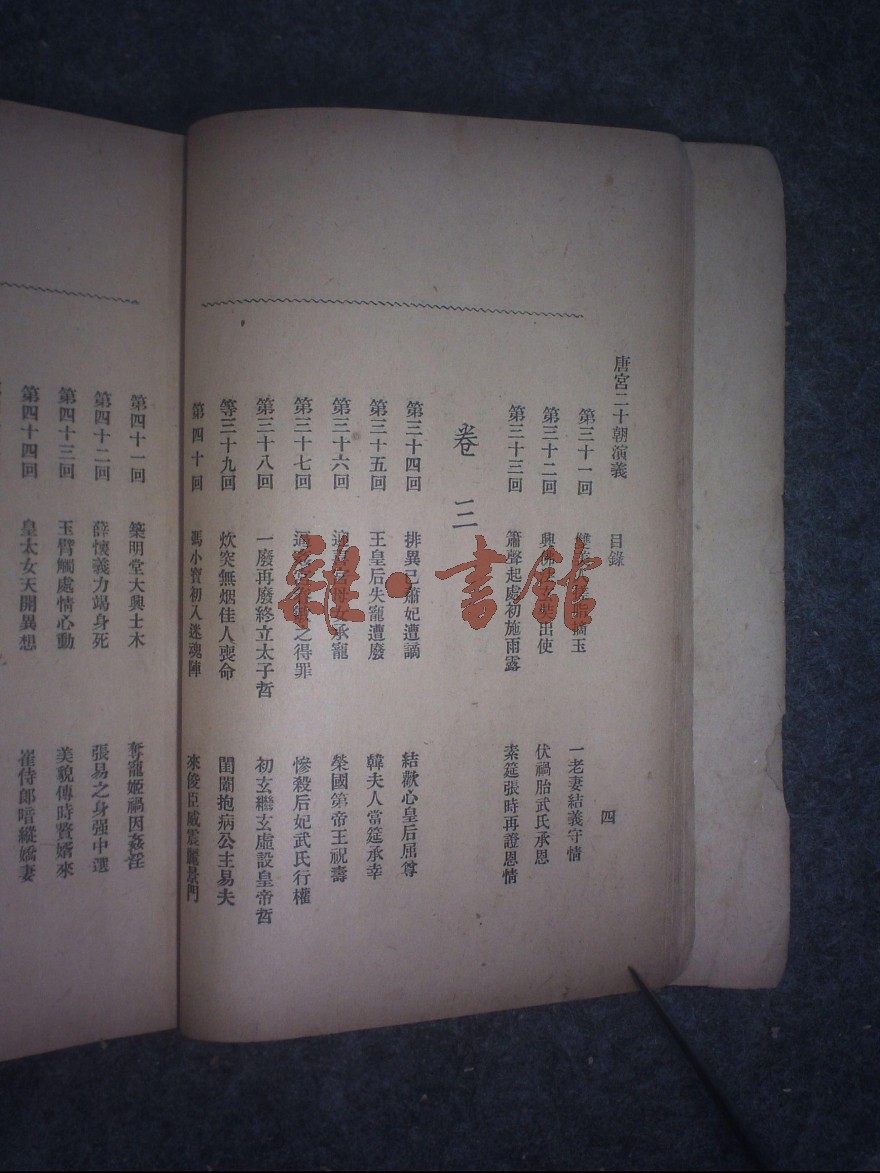 唐宮二十朝演義 目錄 四
第三十一回 玉 一老妻結義守情
第三十二回 興佛 出使 伏禍胎武氏承恩
第三十三回 簫聲起處初施雨露 素筵張時再證恩情
卷三
第三十四回 排異己蕭妃遭謫 結歡心皇后屈尊
第三十五回 王皇后失寵遭廢 韓夫人當筵承幸
第三十六回 母女承寵 榮國第帝王祝壽
第三十七回 之得罪 慘殺后妃武氏行權
第三十八回 一廢再廢終立太子哲 初玄繼玄虛設皇帝哲
等三十九回 炊突無烟佳人喪命 閨闈抱病公主易夫
第四十回 馮小寶初入迷魂陣 來俊臣威震麗景門
第四十一回 築明堂大興土木 奪寵姬禍因姦淫
第四十二回 薛懷義力竭身死 張易之身强中選
第四十三回 玉臂觸處情心動 美貌傳時贅婿來
第四十四回 皇太女天開異想 崔侍郎暗縱嬌妻
雜·書館